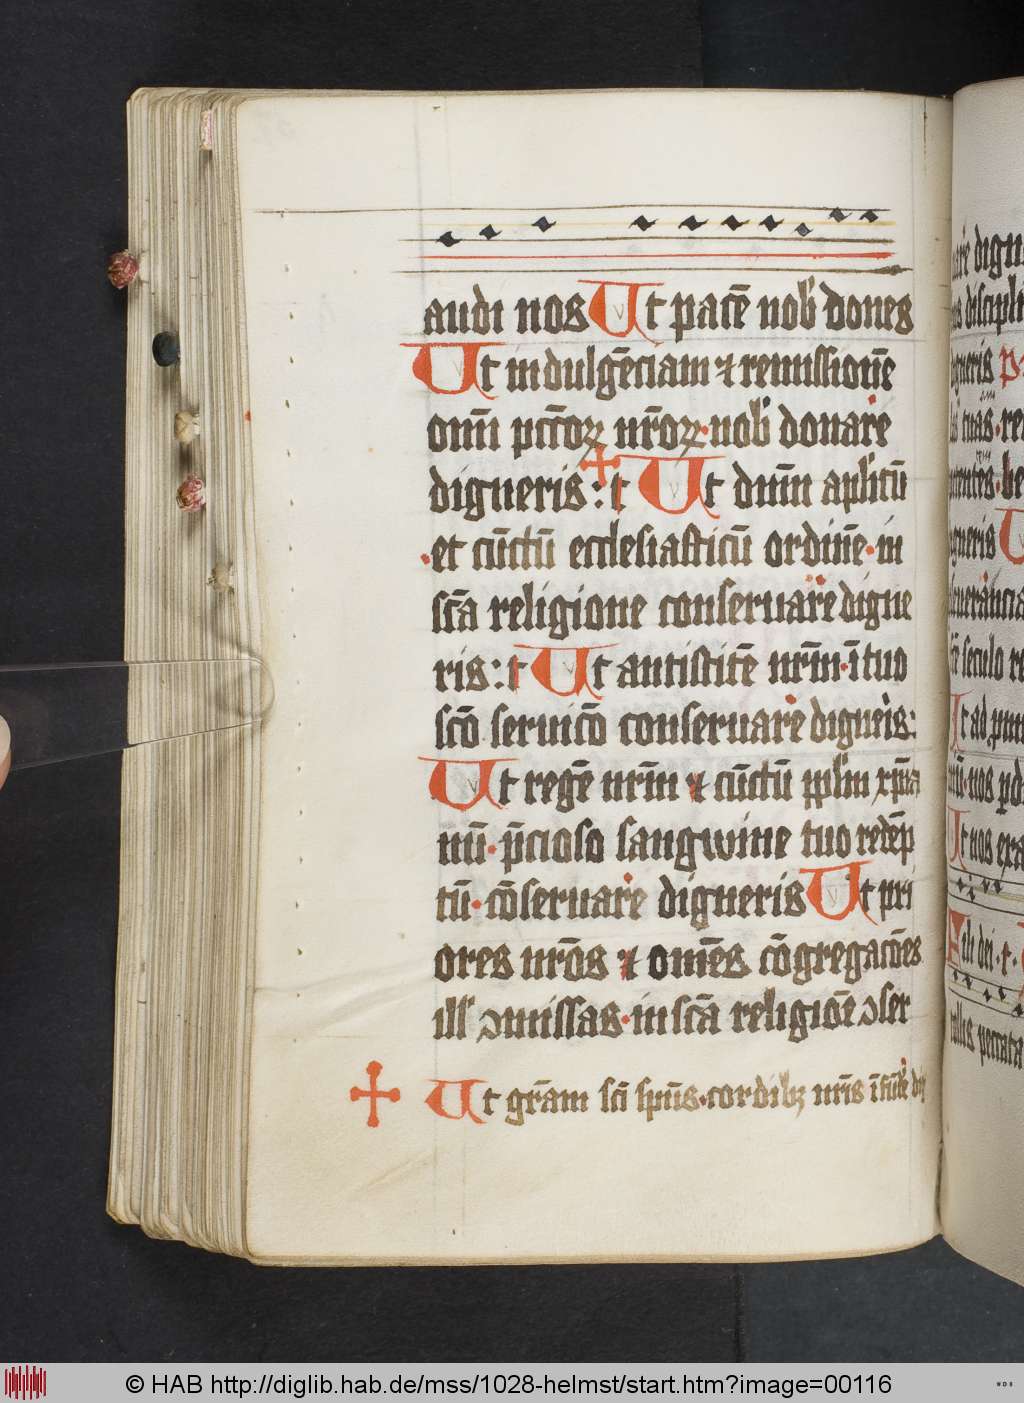 audi nos Ut pacē nob' dones
Ut indulgēciam ⁊ remissionē
om̄i pcc̄oꝝ nr̄oꝝ · nob' donare
digneris : t Ut dnm̄ apl'icū
· et cūctū ecclesiasticū ordinē · in
sc̄a religione conseruare digne
ris : t Ut antistitē nr̄m · ī tuo
sc̄o seruicō conseruare digneris :
Ut regē nr̄m ⁊ cūctū ppl'm xp̄ia
nū · p̄cioso sangwine tuo redēp
tū · cōseruare digneris Ut pri
ores nr̄os ⁊ omēs cōgregacōes
ill' ꝯmissas · in sc̄a religiōe ꝯser
Ut gr̄am sc̄i sp̄us · cordibꝫ nr̄is
are dign
digneris
Ut ad
nos
Ut nos exa
Fili dei · t ·
peccata
© HAB http://diglib.hab.de/mss/1028-helmst/start.htm?image=00116